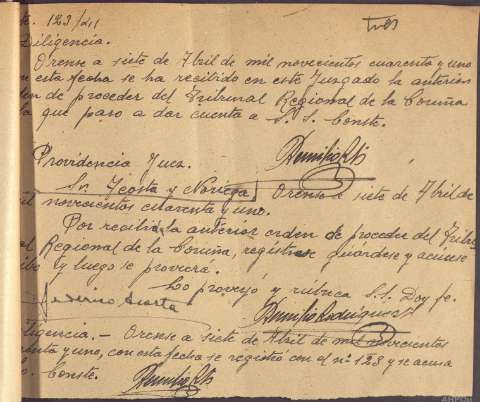 te. 123/41
Diligencia.
Orense a siete de Abril de mil novecientos cuarenta y uno
n esta fecha se ha recibido en este Juzgado la anterior
den de proceder del Tribunal Regional de la Coruña
la que paso a dar cuenta a S. S. Conste.
Providencia Juez.
Sr. Acosta y Noriega Orense a siete de Abril de
il novecientos cuarenta y uno.
Por recibida la anterior orden de proceder del Tribu
al Regional de la Coruña, regístrese guárdese y acuse
cibo y luego se proveera.
Lo proveyó y rubrica S. S. Doy fe.
ligencia.- Orense a siete de Abril de mil novecientos
renta y uno, con esta fecha se registró con el nº 123 y se acusa
o. Conste.